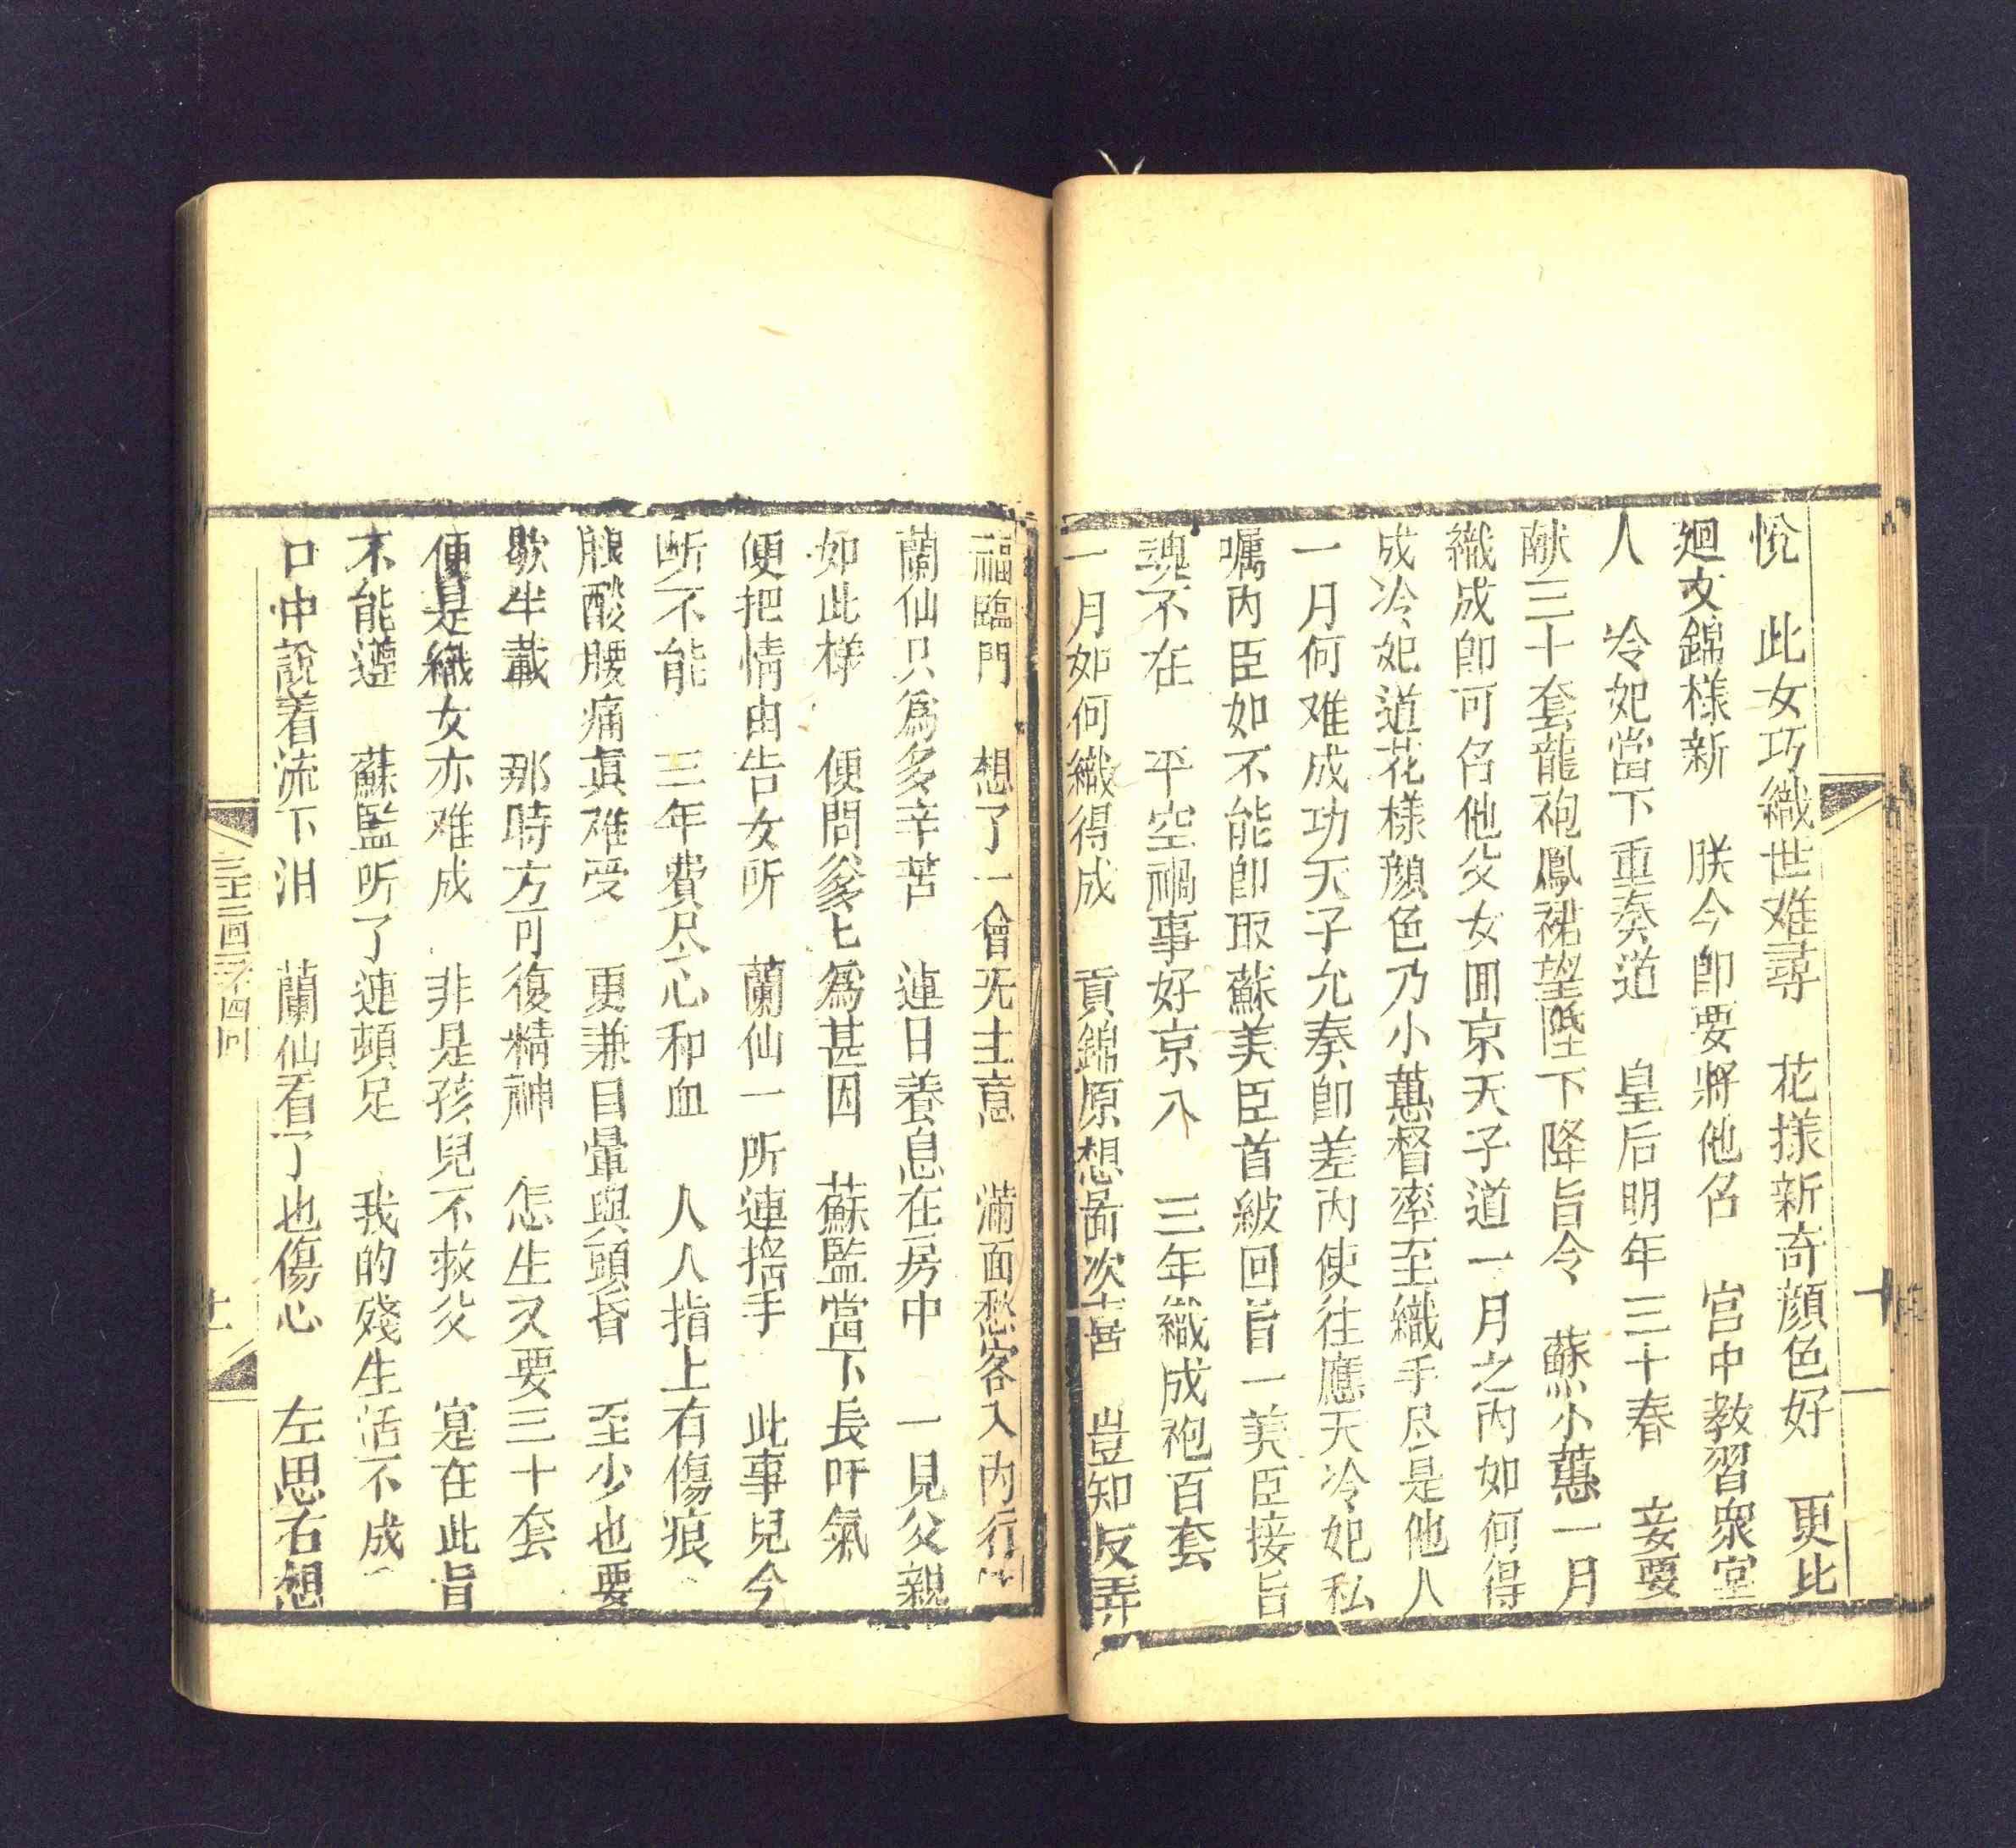 悅　此女巧織世难尋　花様新奇顔色好　更比
廻文錦様新　朕今卽要將他召　宫中教習衆室
人　冷妃當下重奏道　皇后明年三十春　妾要
献三十套龍袍鳳裙望陛下降旨令　蘇小蕙一月
織成卽可召他父女囬京天子道一月之内如何得
成冷妃道花様顔色乃小蕙督率至織手尽是他人
一月何难成功天子允奏卽差内使往應天冷妃私
嘱内臣如不能卽取蘇美臣首級回旨一美臣接旨
魂不在　平空禍事好京人　三年織成袍百套
一月如何織得成　貢錦原想啚次害　豈知反弄
福臨門　想了一會旡主意　滿面愁容入内行
蘭仙只爲多辛苦　連日養息在房中　一見父親
如此様　便問爹匕爲甚因　蘇監當下長吁氣
便把情由告女听　蘭仙一听連搖手　此事兒今
断不能　三年費尽心和血　人人指上有傷痕
眼酸腰痛真难受　更兼目暈與頭昏　至少也要
歇半載　那時方可復精神　怎生又要三十套
便是織女亦难成　非是孩兒不救父　寔在此旨
不能遵　蘇監听了連頓足　我的殘生活不成
口中說着流下泪　蘭仙看了也傷心　左思右想
十
十一